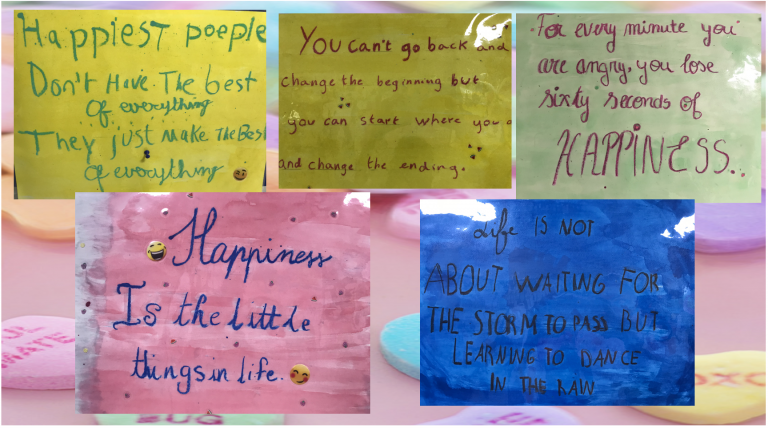 Happiest poeple
Don't Have The best
Of everything
They just Make The Best
of everything
You can't go back and
change the beginning but
you can start where you a
and change the ending.
For every minute you
are angry, you lose
sixty seconds of
HAPPINESS..
Happiness
Is the little
things in life.
Life IS NOT
ABOUT WAITING FOR
THE STORM TO PASS BUT
LEARNING TO DANCE
IN THE RAW
UL
MATE
BUG
OXO